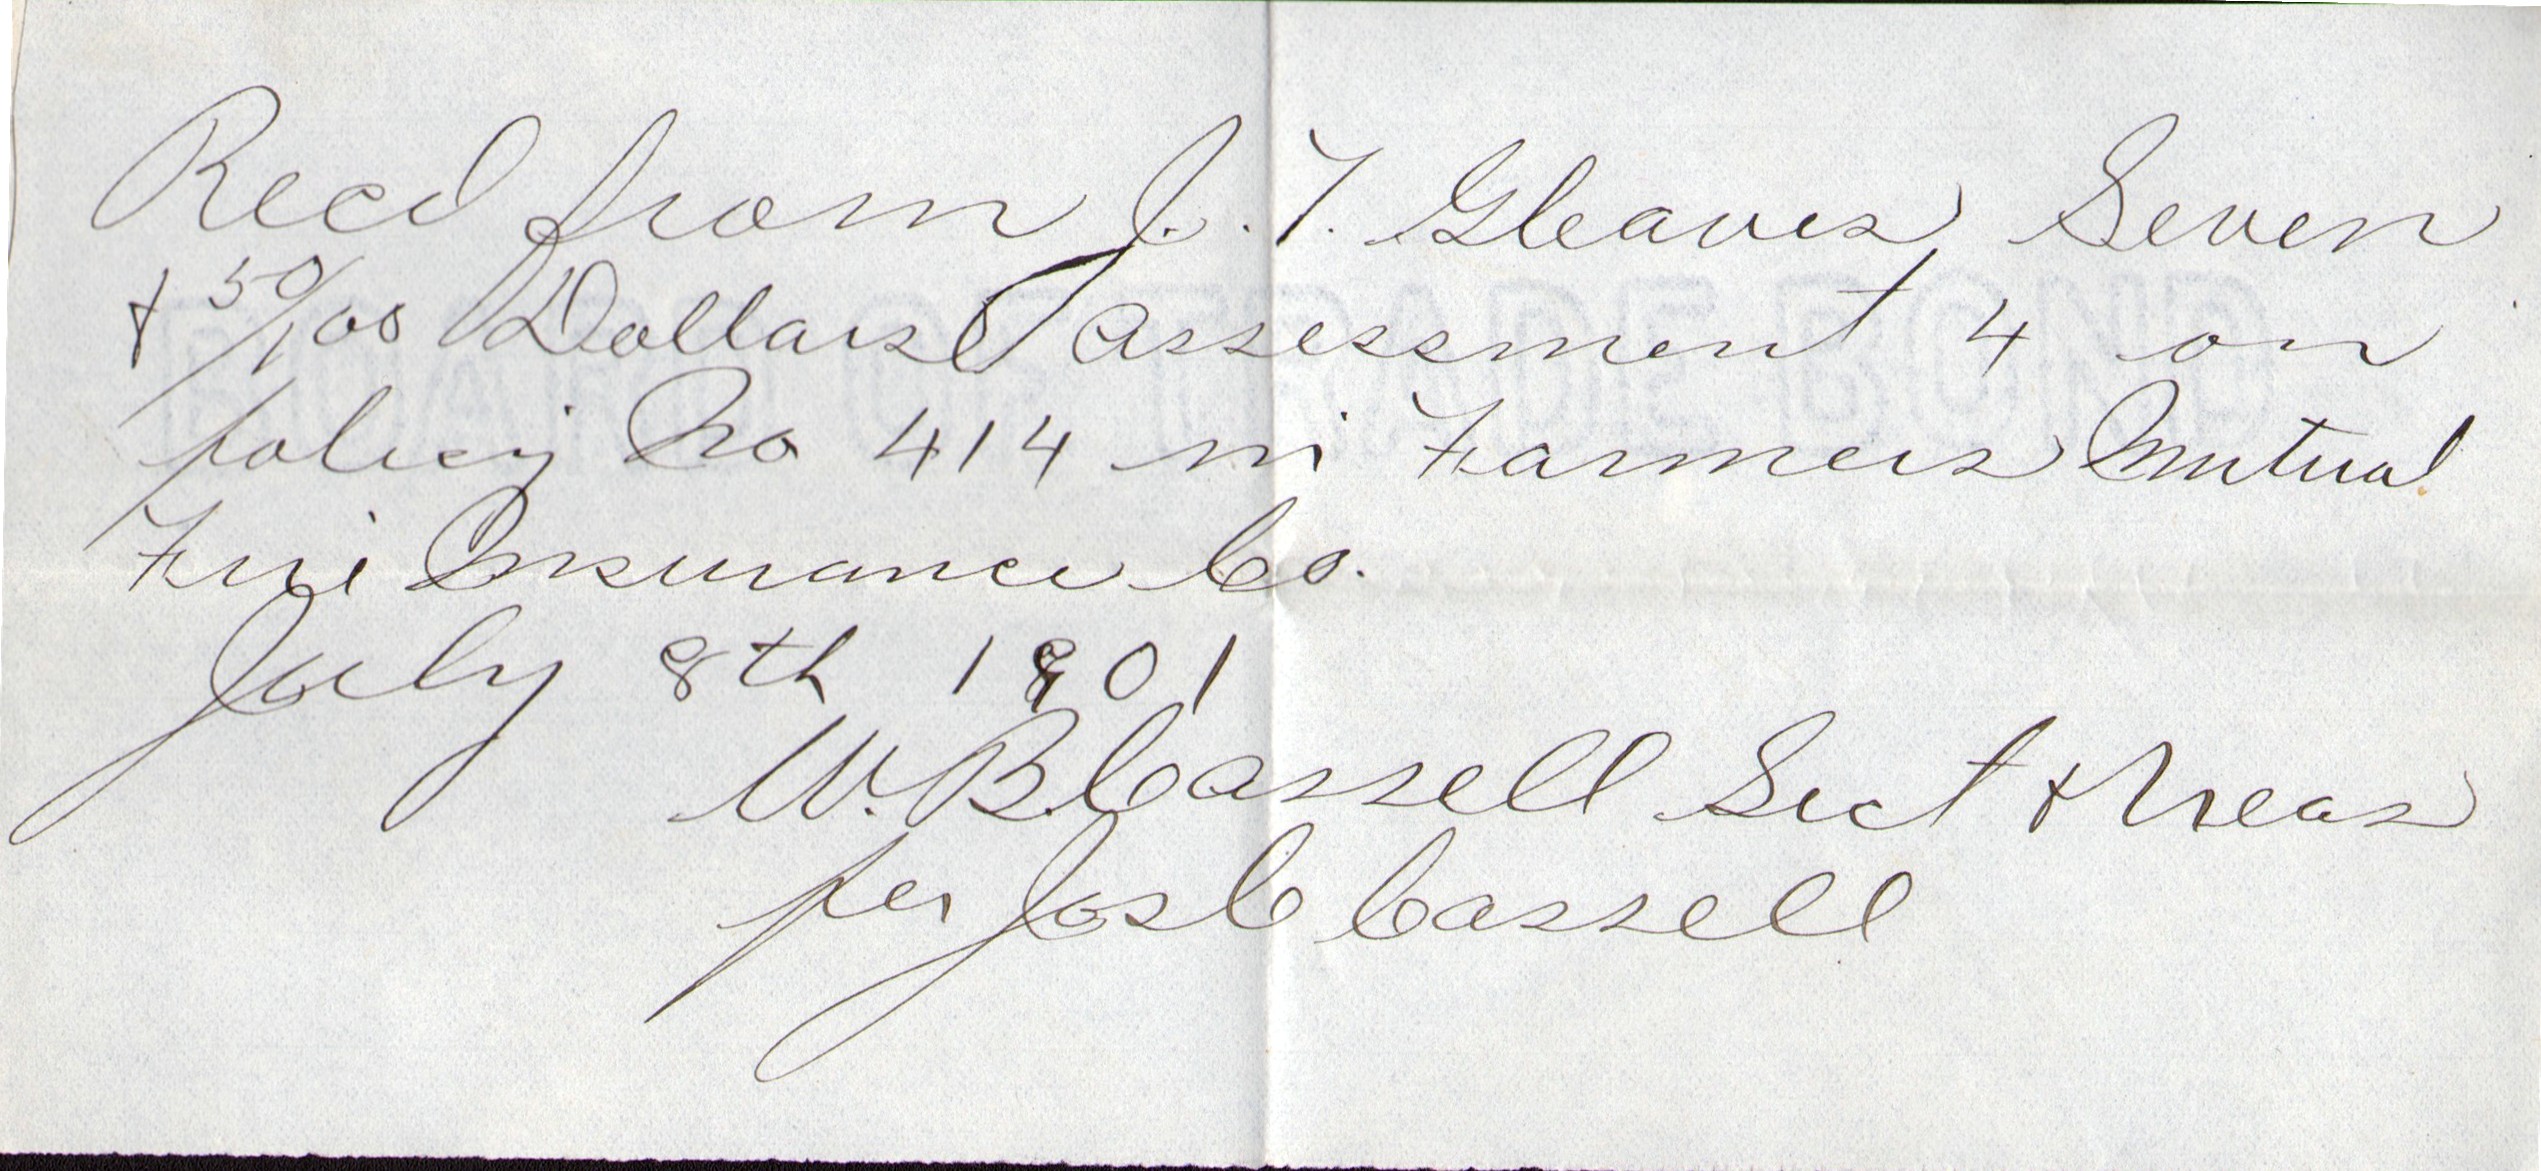 Recd from J. T. Gleaves Seven
& 50/100 Dollars assessment 4 on
policy No 414 in Farmers Mutual
Fire Insurance Co.
July 8th 1901
W. B. Cassell Sect & Treas
per Jos C Cassell
BOARD OF TRADE BOND